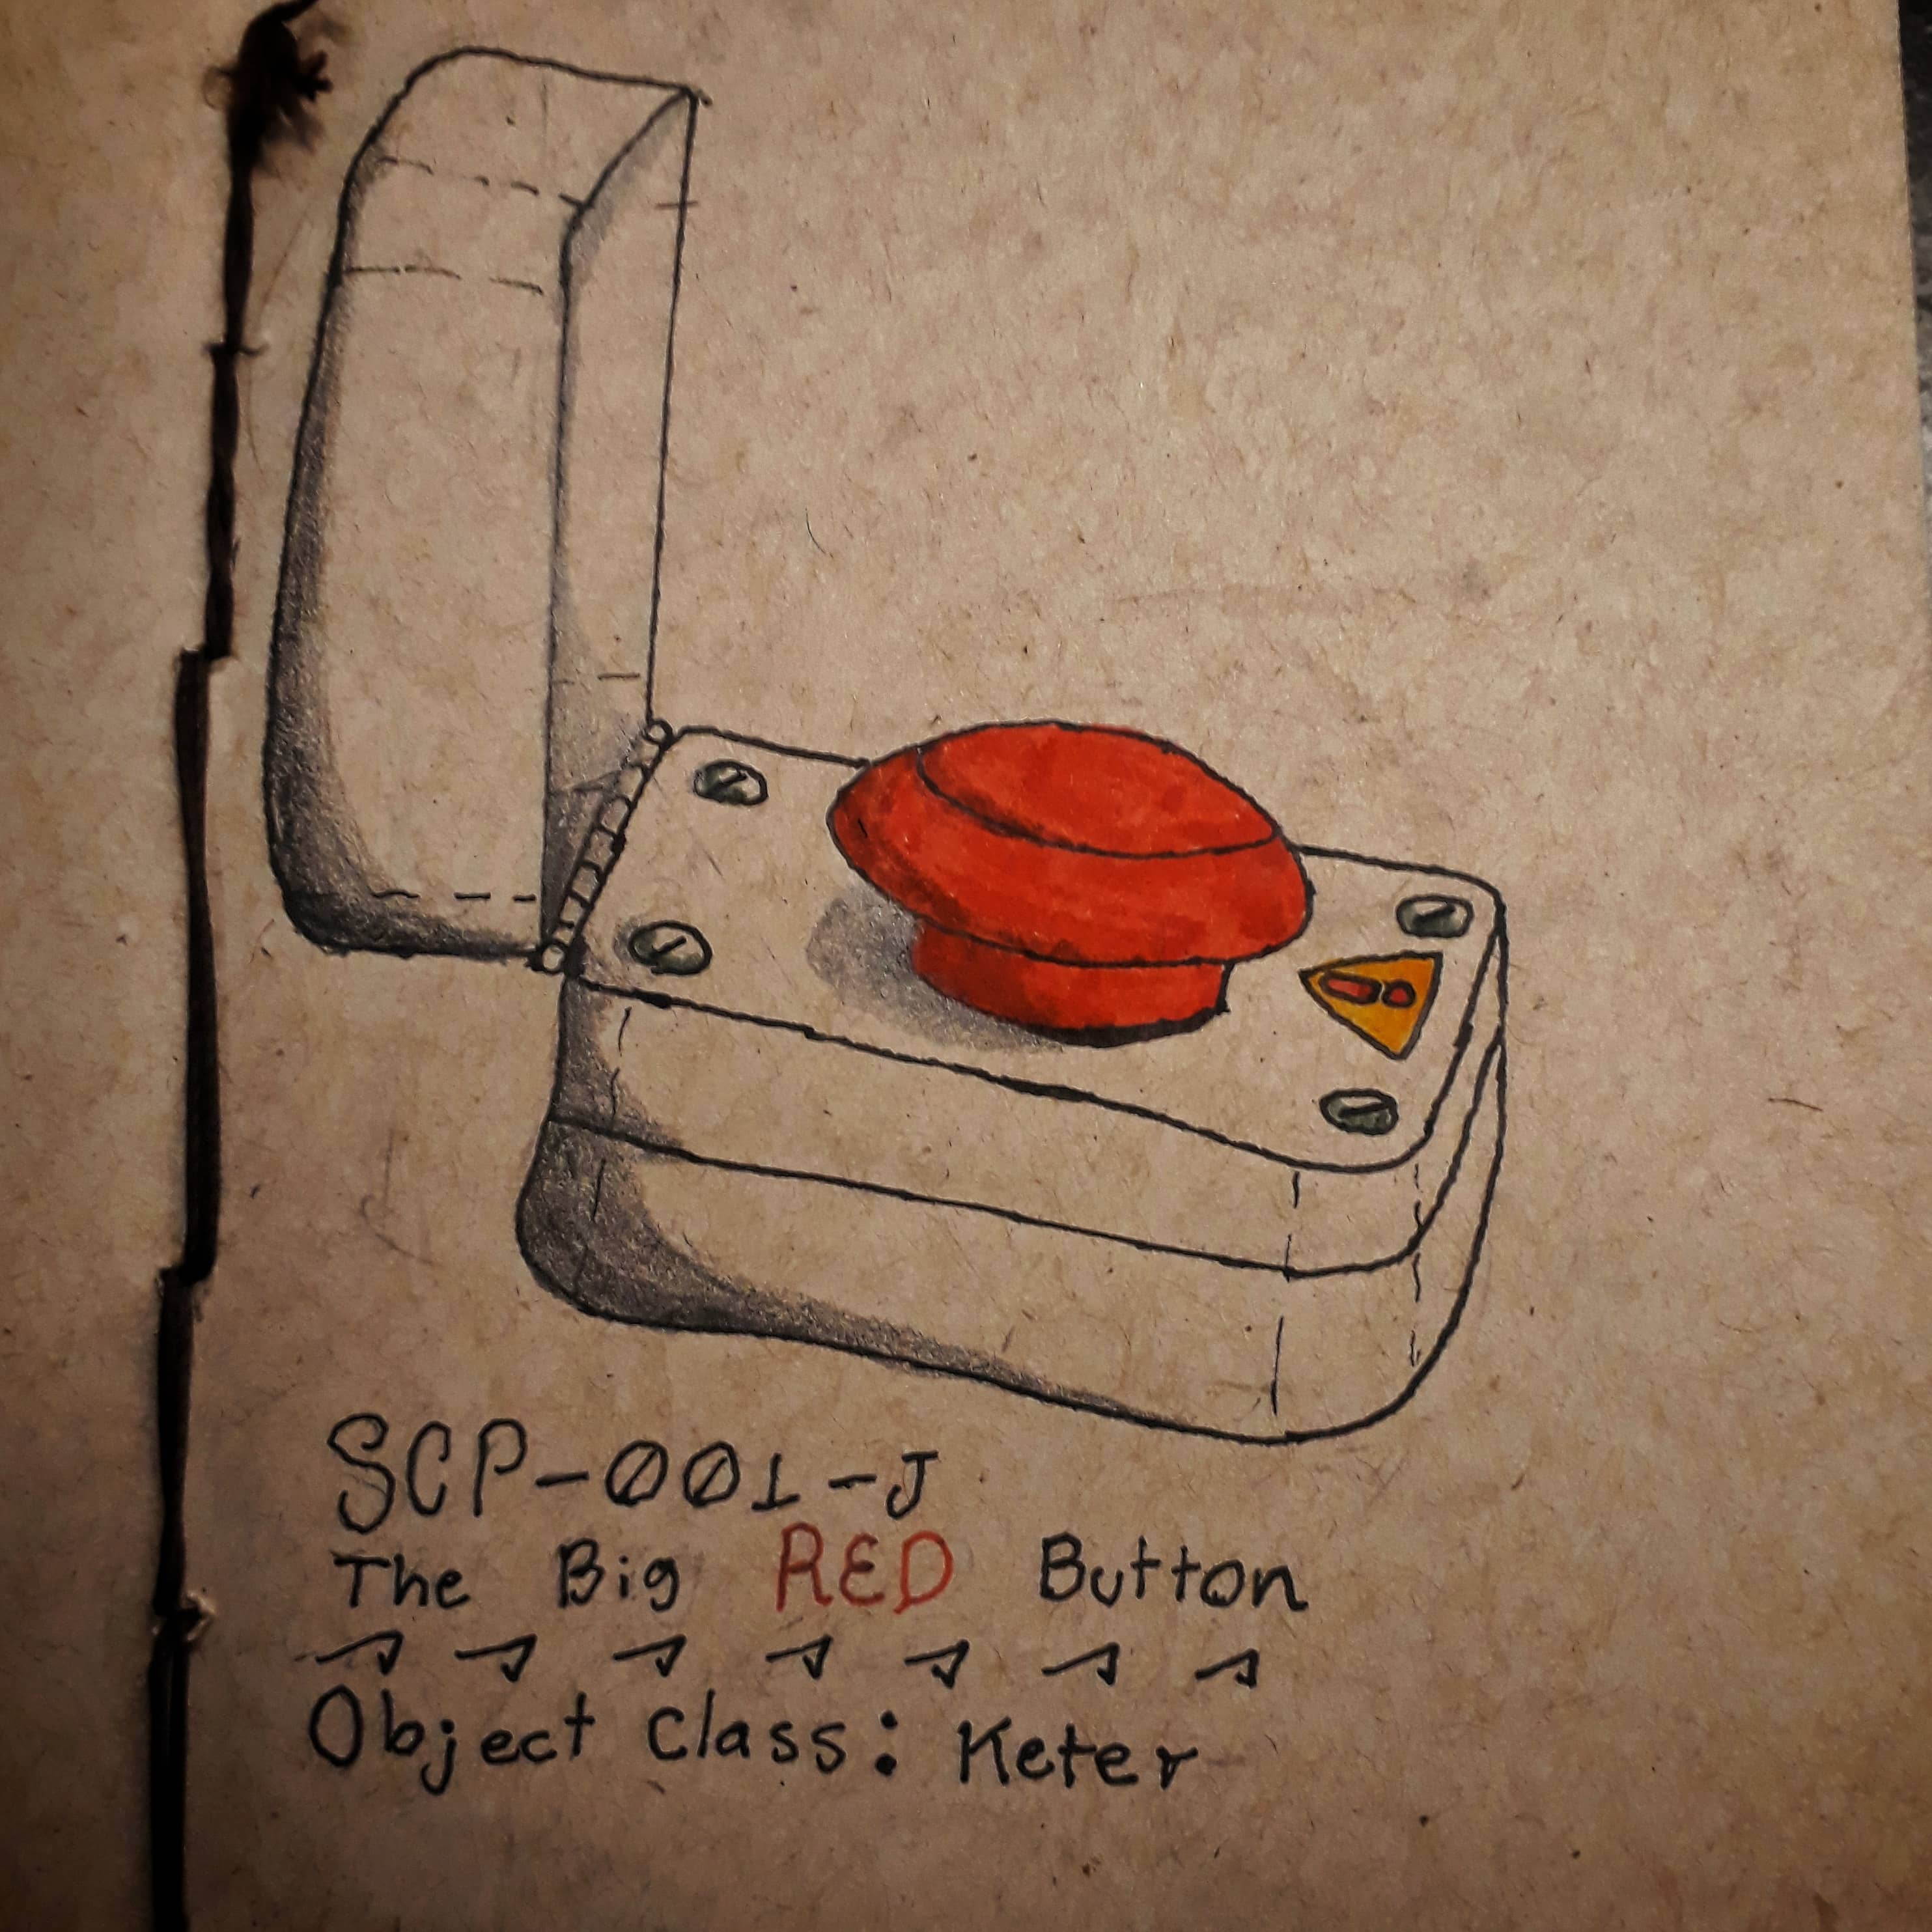 SCP-001-J
The Big RED Button
Object Class: Keter